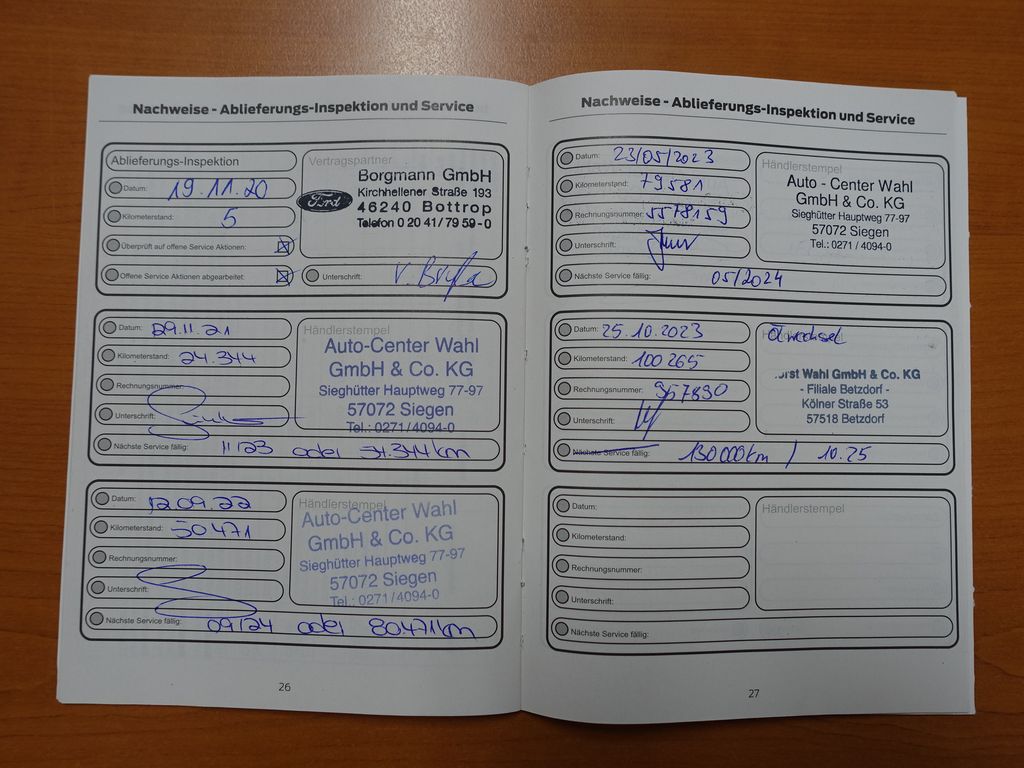 Nachweise - Ablieferungs-Inspektion und Service
Ablieferungs-Inspektion
Datum: 19.11.20
Kilometerstand: 5
Überprüft auf offene Service Aktionen: ☒
Offene Service Aktionen abgearbeitet: ☒
Vertragspartner
Ford
Borgmann GmbH
Kirchhellener Straße 193
46240 Bottrop
Telefon 0 20 41 / 79 59 - 0
Unterschrift:
Datum: 29.11.21
Kilometerstand: 24.344
Rechnungsnummer:
Unterschrift:
Händlerstempel
Auto-Center Wahl
GmbH & Co. KG
Sieghütter Hauptweg 77-97
57072 Siegen
Tel.: 0271 / 4094-0
Nächste Service fällig: 11/23 oder 54.344km
Datum: 12.09.22
Kilometerstand: 50471
Rechnungsnummer:
Unterschrift:
Händlerstempel
Auto-Center Wahl
GmbH & Co. KG
Sieghütter Hauptweg 77-97
57072 Siegen
Tel.: 0271 / 4094-0
Nächste Service fällig: 09/24 oder 80471km
26
Nachweise - Ablieferungs-Inspektion und Service
Datum: 23/05/2023
Kilometerstand: 79581
Rechnungsnummer: 5578159
Unterschrift:
Händlerstempel
Auto - Center Wahl
GmbH & Co. KG
Sieghütter Hauptweg 77-97
57072 Siegen
Tel.: 0271 / 4094-0
Nächste Service fällig: 05/2024
Datum: 25.10.2023
Kilometerstand: 100265
Rechnungsnummer: 957890
Unterschrift:
Ölwechsel
GmbH & Co. KG
- Filiale Betzdorf -
Kölner Straße 53
57518 Betzdorf
Nächste Service fällig: 130000km / 10.25
Datum:
Kilometerstand:
Rechnungsnummer:
Unterschrift:
Händlerstempel
Nächste Service fällig:
27